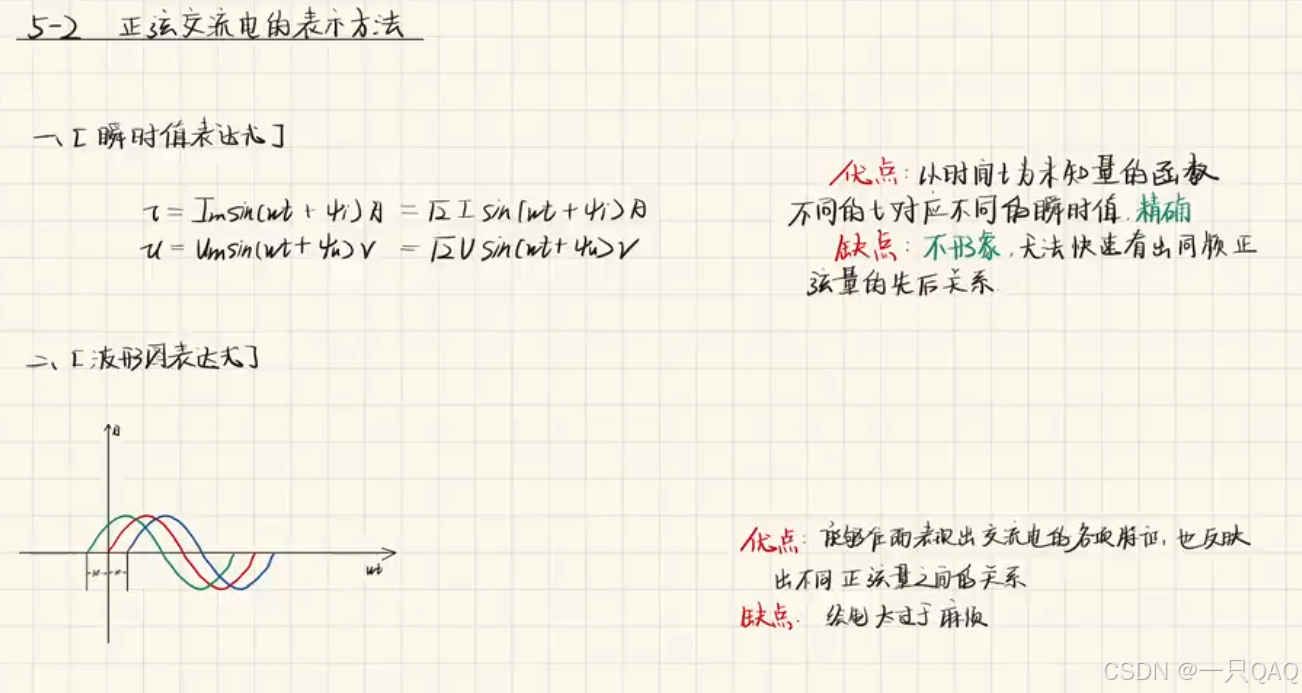 5-2 正弦交流电的表示方法
一、[瞬时值表达式]
i = Imsin(wt + ψi) A = √2 I sin(wt + ψi) A
u = Umsin(wt + ψu) V = √2 U sin(wt + ψu) V
优点: 以时间t为未知量的函数
不同的t对应不同的瞬时值, 精确
缺点: 不形象, 无法快速看出同频正
弦量的先后关系.
二、[波形图表达式]
A
wt
优点: 能够全面表现出交流电的各项特征, 也反映
出不同正弦量之间的关系
缺点: 太过于麻烦
CSDN @一只QAQ